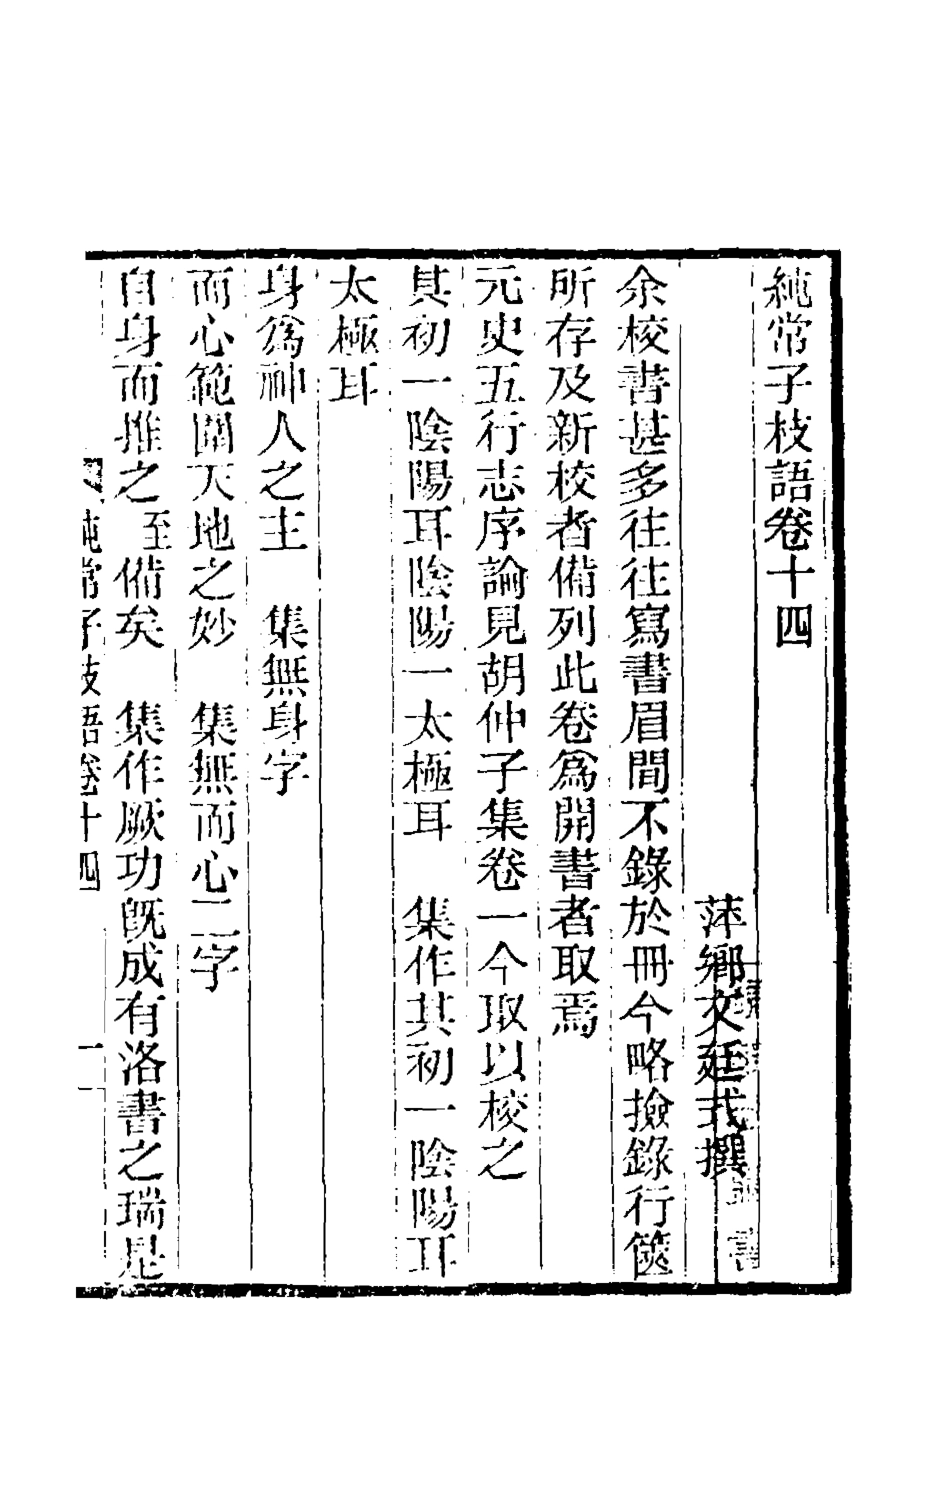 純常子枝語卷十四
萍鄉文廷式撰
余校書甚多往往寫書眉間不錄於冊今略撿錄行篋
所存及新校者備列此卷爲開書者取焉
元史五行志序論見胡仲子集卷一今取以校之
其初一陰陽耳陰陽一太極耳　集作其初一陰陽耳
太極耳
身爲神人之主　集無身字
而心範圍天地之妙　集無而心二字
自身而推之至備矣　集作厥功旣成有洛書之瑞是
純常子枝語卷十四
一